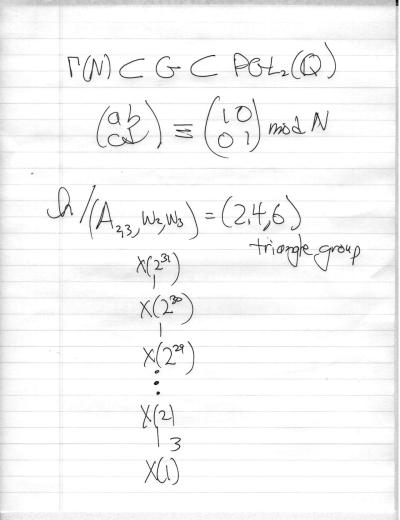 Γ(N) ⊂ G ⊂ PGL₂(Q)
(a b
c d) ≡ (1 0
0 1) mod N
h/(A₂,₃, W₂, W₃) = (2,4,6)
triangle group
X(2³¹)
X(2³⁰)
X(2²⁹)
⋮
X(2)
3
X(1)